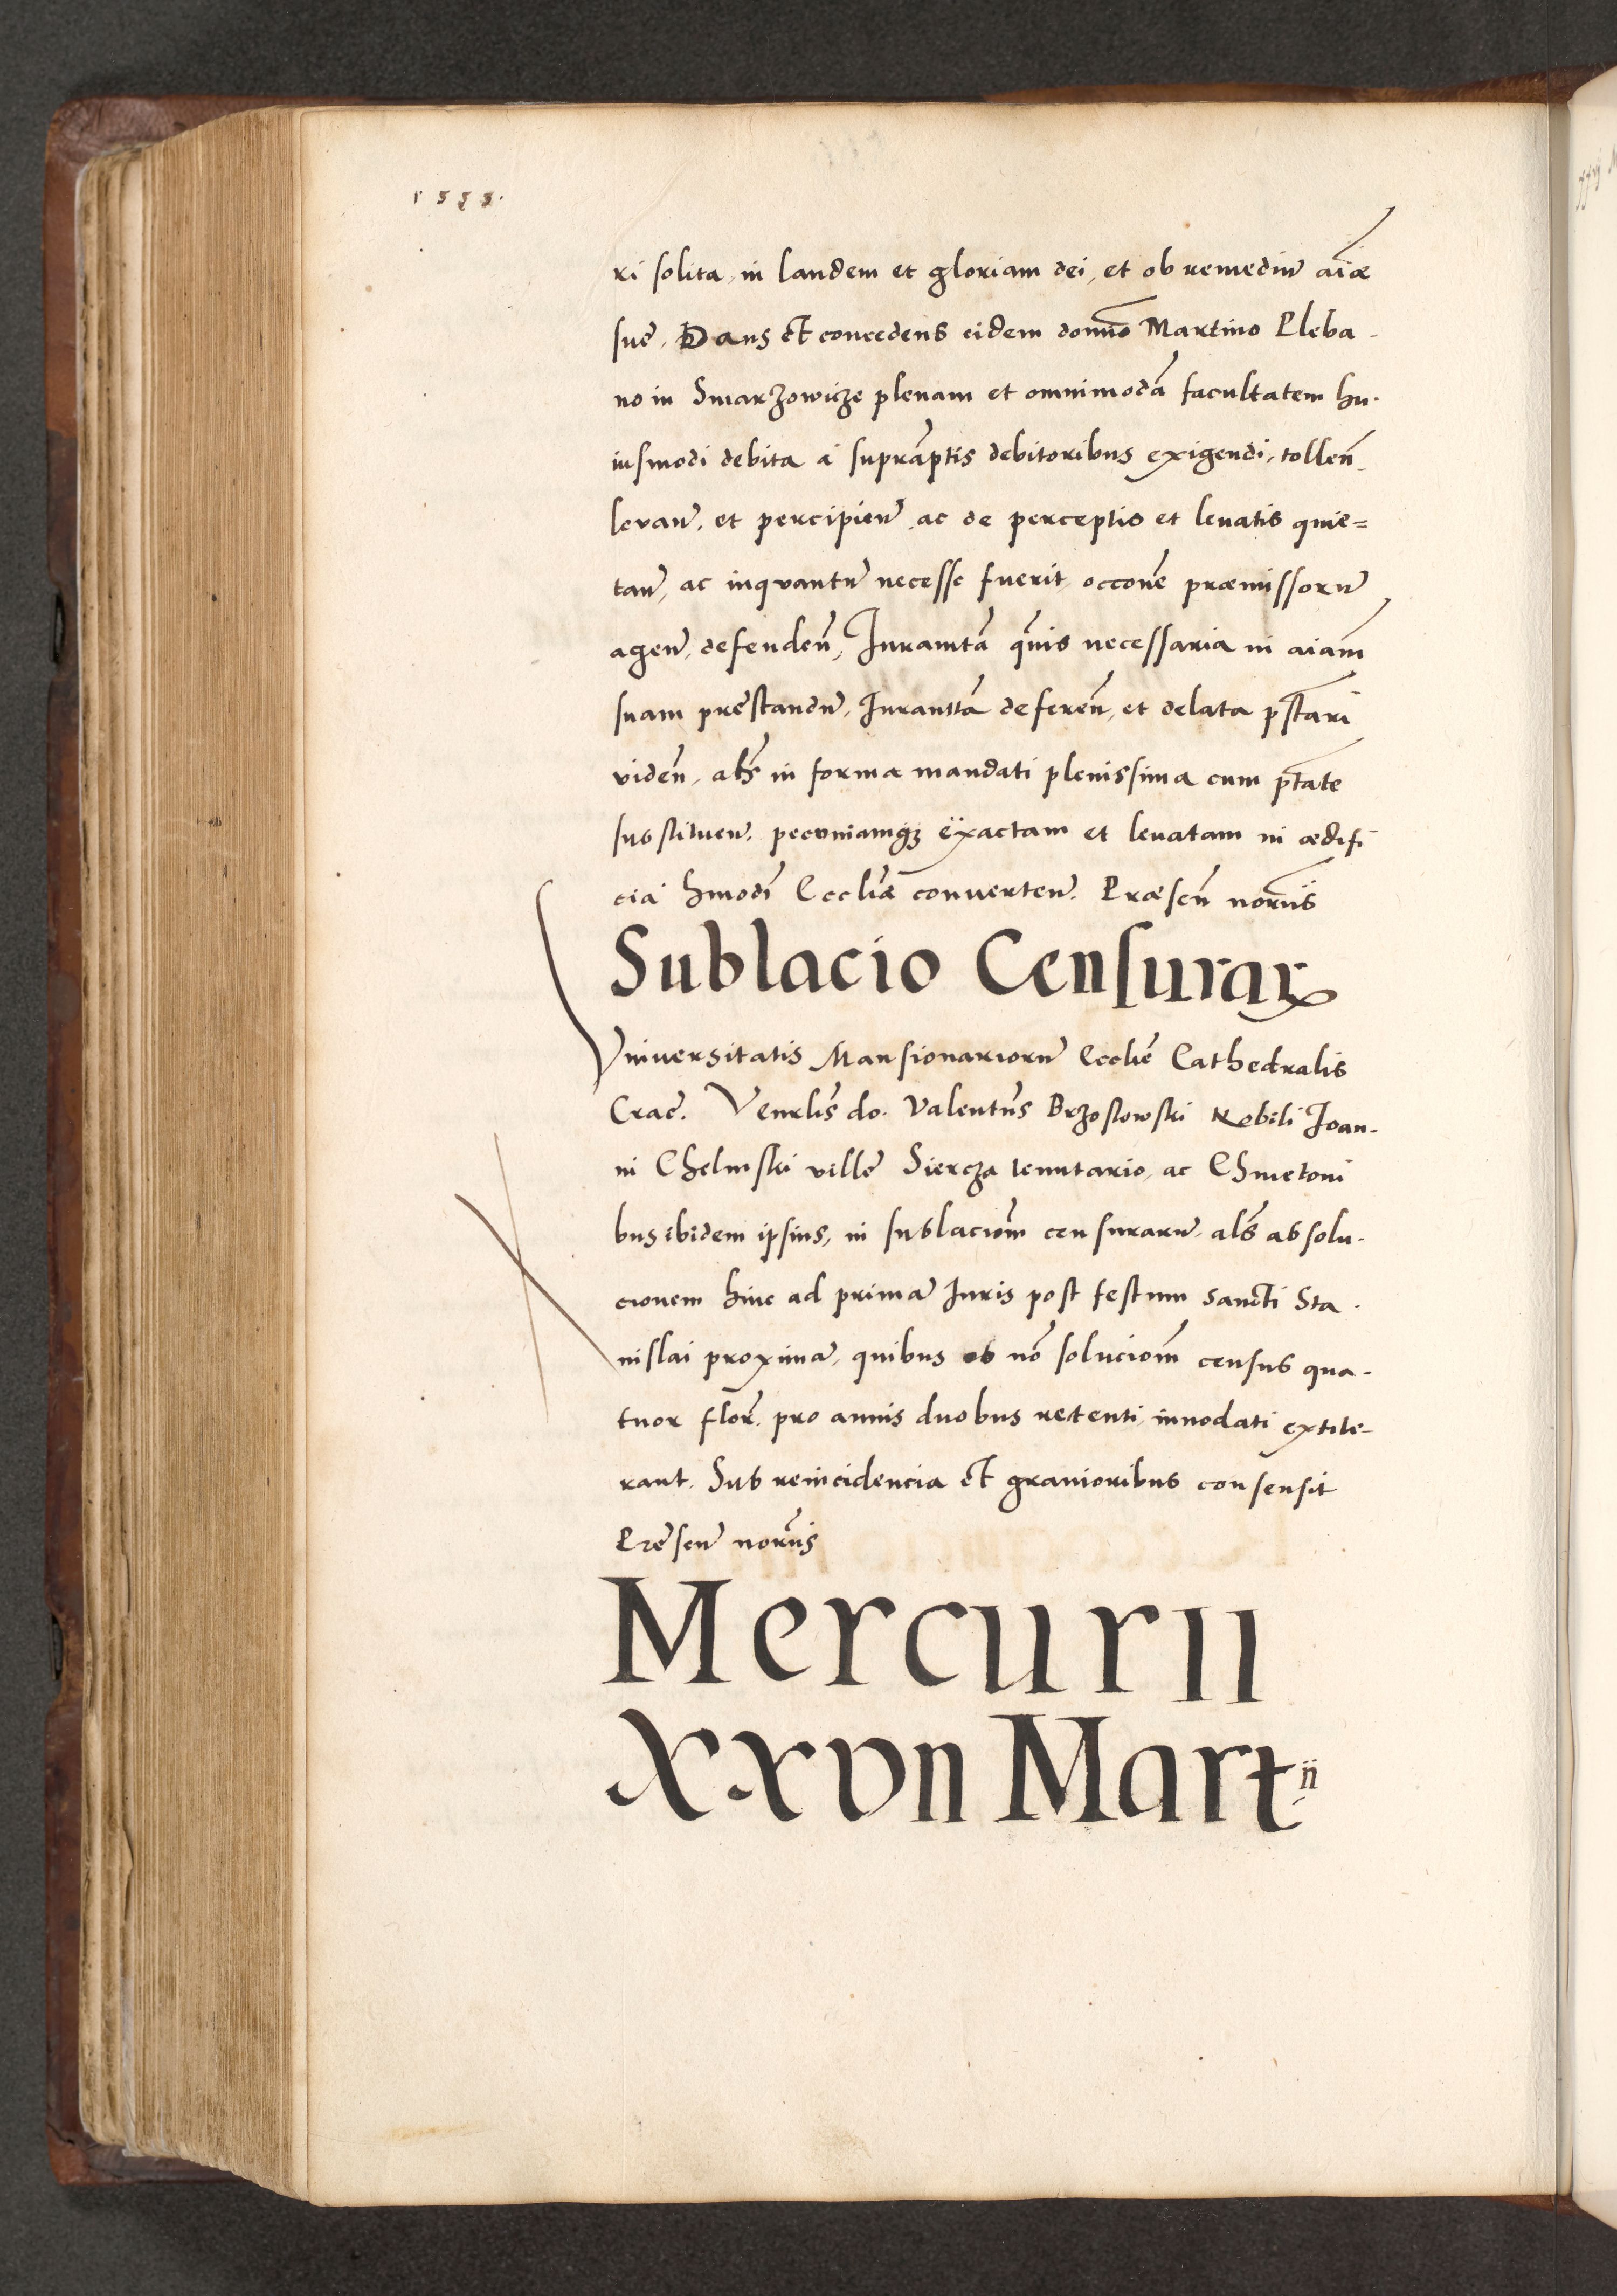 1555.
ri solita, in laudem et gloriam dei, et ob remediũ aĩae
suę. Dans et concedens eidem domĩo Martino Pleba-
no in Smarzowicze plenam et omnimodã facultatem hu-
iusmodi debita a suprãptis debitoribus exigendi, tolleñ
levañ. et percipieñ. ac de perceptis et levatis quie=
tañ, ac inquantũ necesse fuerit, occoñe præmissorũ
ageñ, defendeñ, Iuramtã quis necessaria in aiam
suam pręstandũ, Iuramtã defereñ, et delata pstari
videñ, als in forma mandati plenissima cum ptate
substitueñ. pecuniamqz exactam et levatam in ædifi
cia hmodi Eccliæ converteñ. Præseñ norijs
Sublacio Censurarꝝ
Vniversitatis Mansionariorũ Eccliẽ Cathedralis
Crac. Venrlis do. Valentñs Brzostowski Nobili Ioan-
ni Chelmski villę Siercza tenutario, ac Chmetoni
bus ibidem ipsius, in sublacioñm censurarũ, als absolu-
cionem hinc ad primã Iuris post festum sancti Sta-
nislai proximã, quibus ob nõ solucioñm census qua-
tuor floř. pro annis duobus retenti, innodati extite-
rant. Sub reincidencia et gravioribus consensit
Pręseñ norijs
Mercurii
xxvii Martii